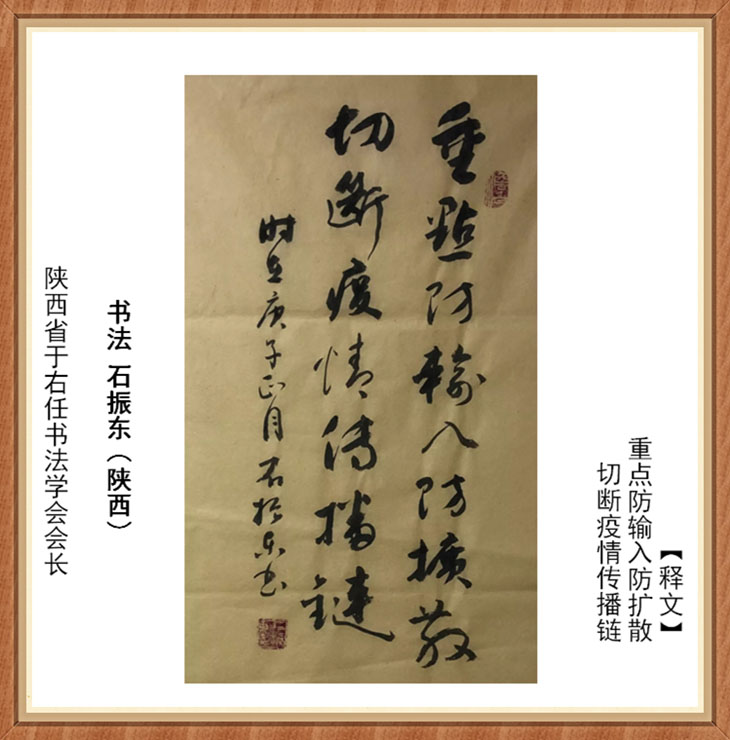 重點防輸入防擴散
切斷疫情傳播鏈
时在庚子正月 石振东书
【释文】
重点防输入防扩散
切断疫情传播链
书法 石振东（陕西）
陕西省于右任书法学会会长